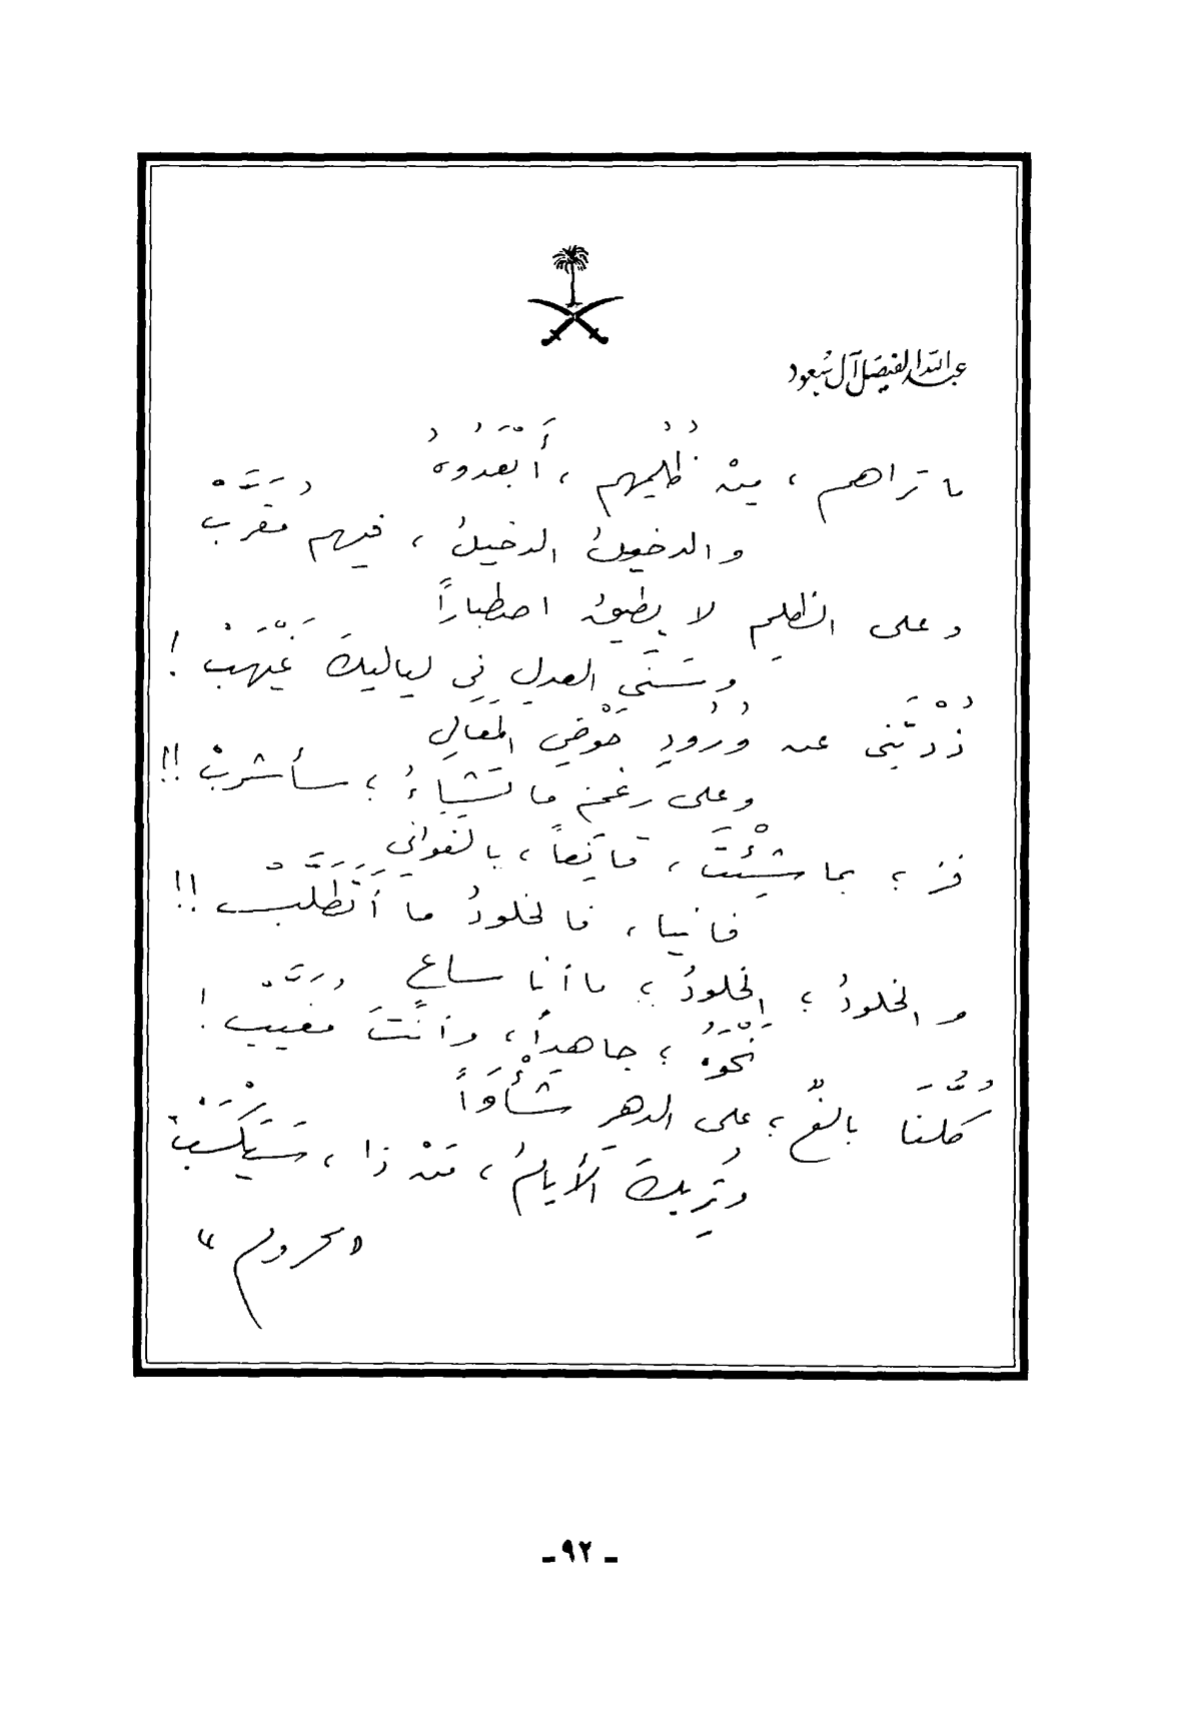 عبدالله الفيصل آل سعود
ما تراهم ، مِنْ ظُلمِهم ، أَبْعَدُوهُ
والدخيلُ الدخيلُ ، فيهم مُقَرَّبْ
وعلى الظلم لا يطيقُ اصطباراً
وسَنَى العدلِ في لياليكَ غَيْهَبْ !
ذُدْتَني عن وُرُودِ حَوْضِ المَعَالي
وعلى رغم ما تَشَاءُ ؛ سأشربْ !!
فز ؛ بما شِئْتَ ، قانِعاً ، بالغَواني
فانيا ، فالخلودُ ما أَتَطَلَّبْ !!
والخلودُ ؛ الخلودُ ؛ ما أنا ساعٍ
نَحْوَهُ ؛ جاهداً ، وأنْتَ مُغَيَّبْ !
كُلُّنَا بالغٌ ؛ على الدهرِ شَأْوَاً
وتُرِيكَ الأيامُ ، مَنْ ذا ، سَيَكْسَبْ
"محروم"
ـ ٩٢ ـ